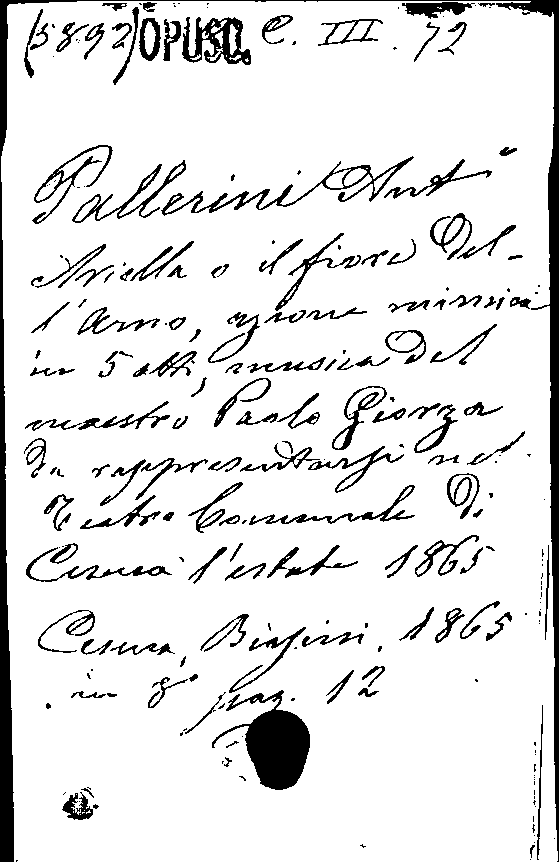 (5892) OPUSC. C. III. 72
Pallerini Ant°
Ariella o il fiore del-
l'Arno, azione mimica
in 5 atti, musica del
maestro Paolo Giorza
da rappresentarsi nel
Teatro Comunale di
Cesena l'estate 1865
Cesena, Biasini, 1865
in 8° pag. 12